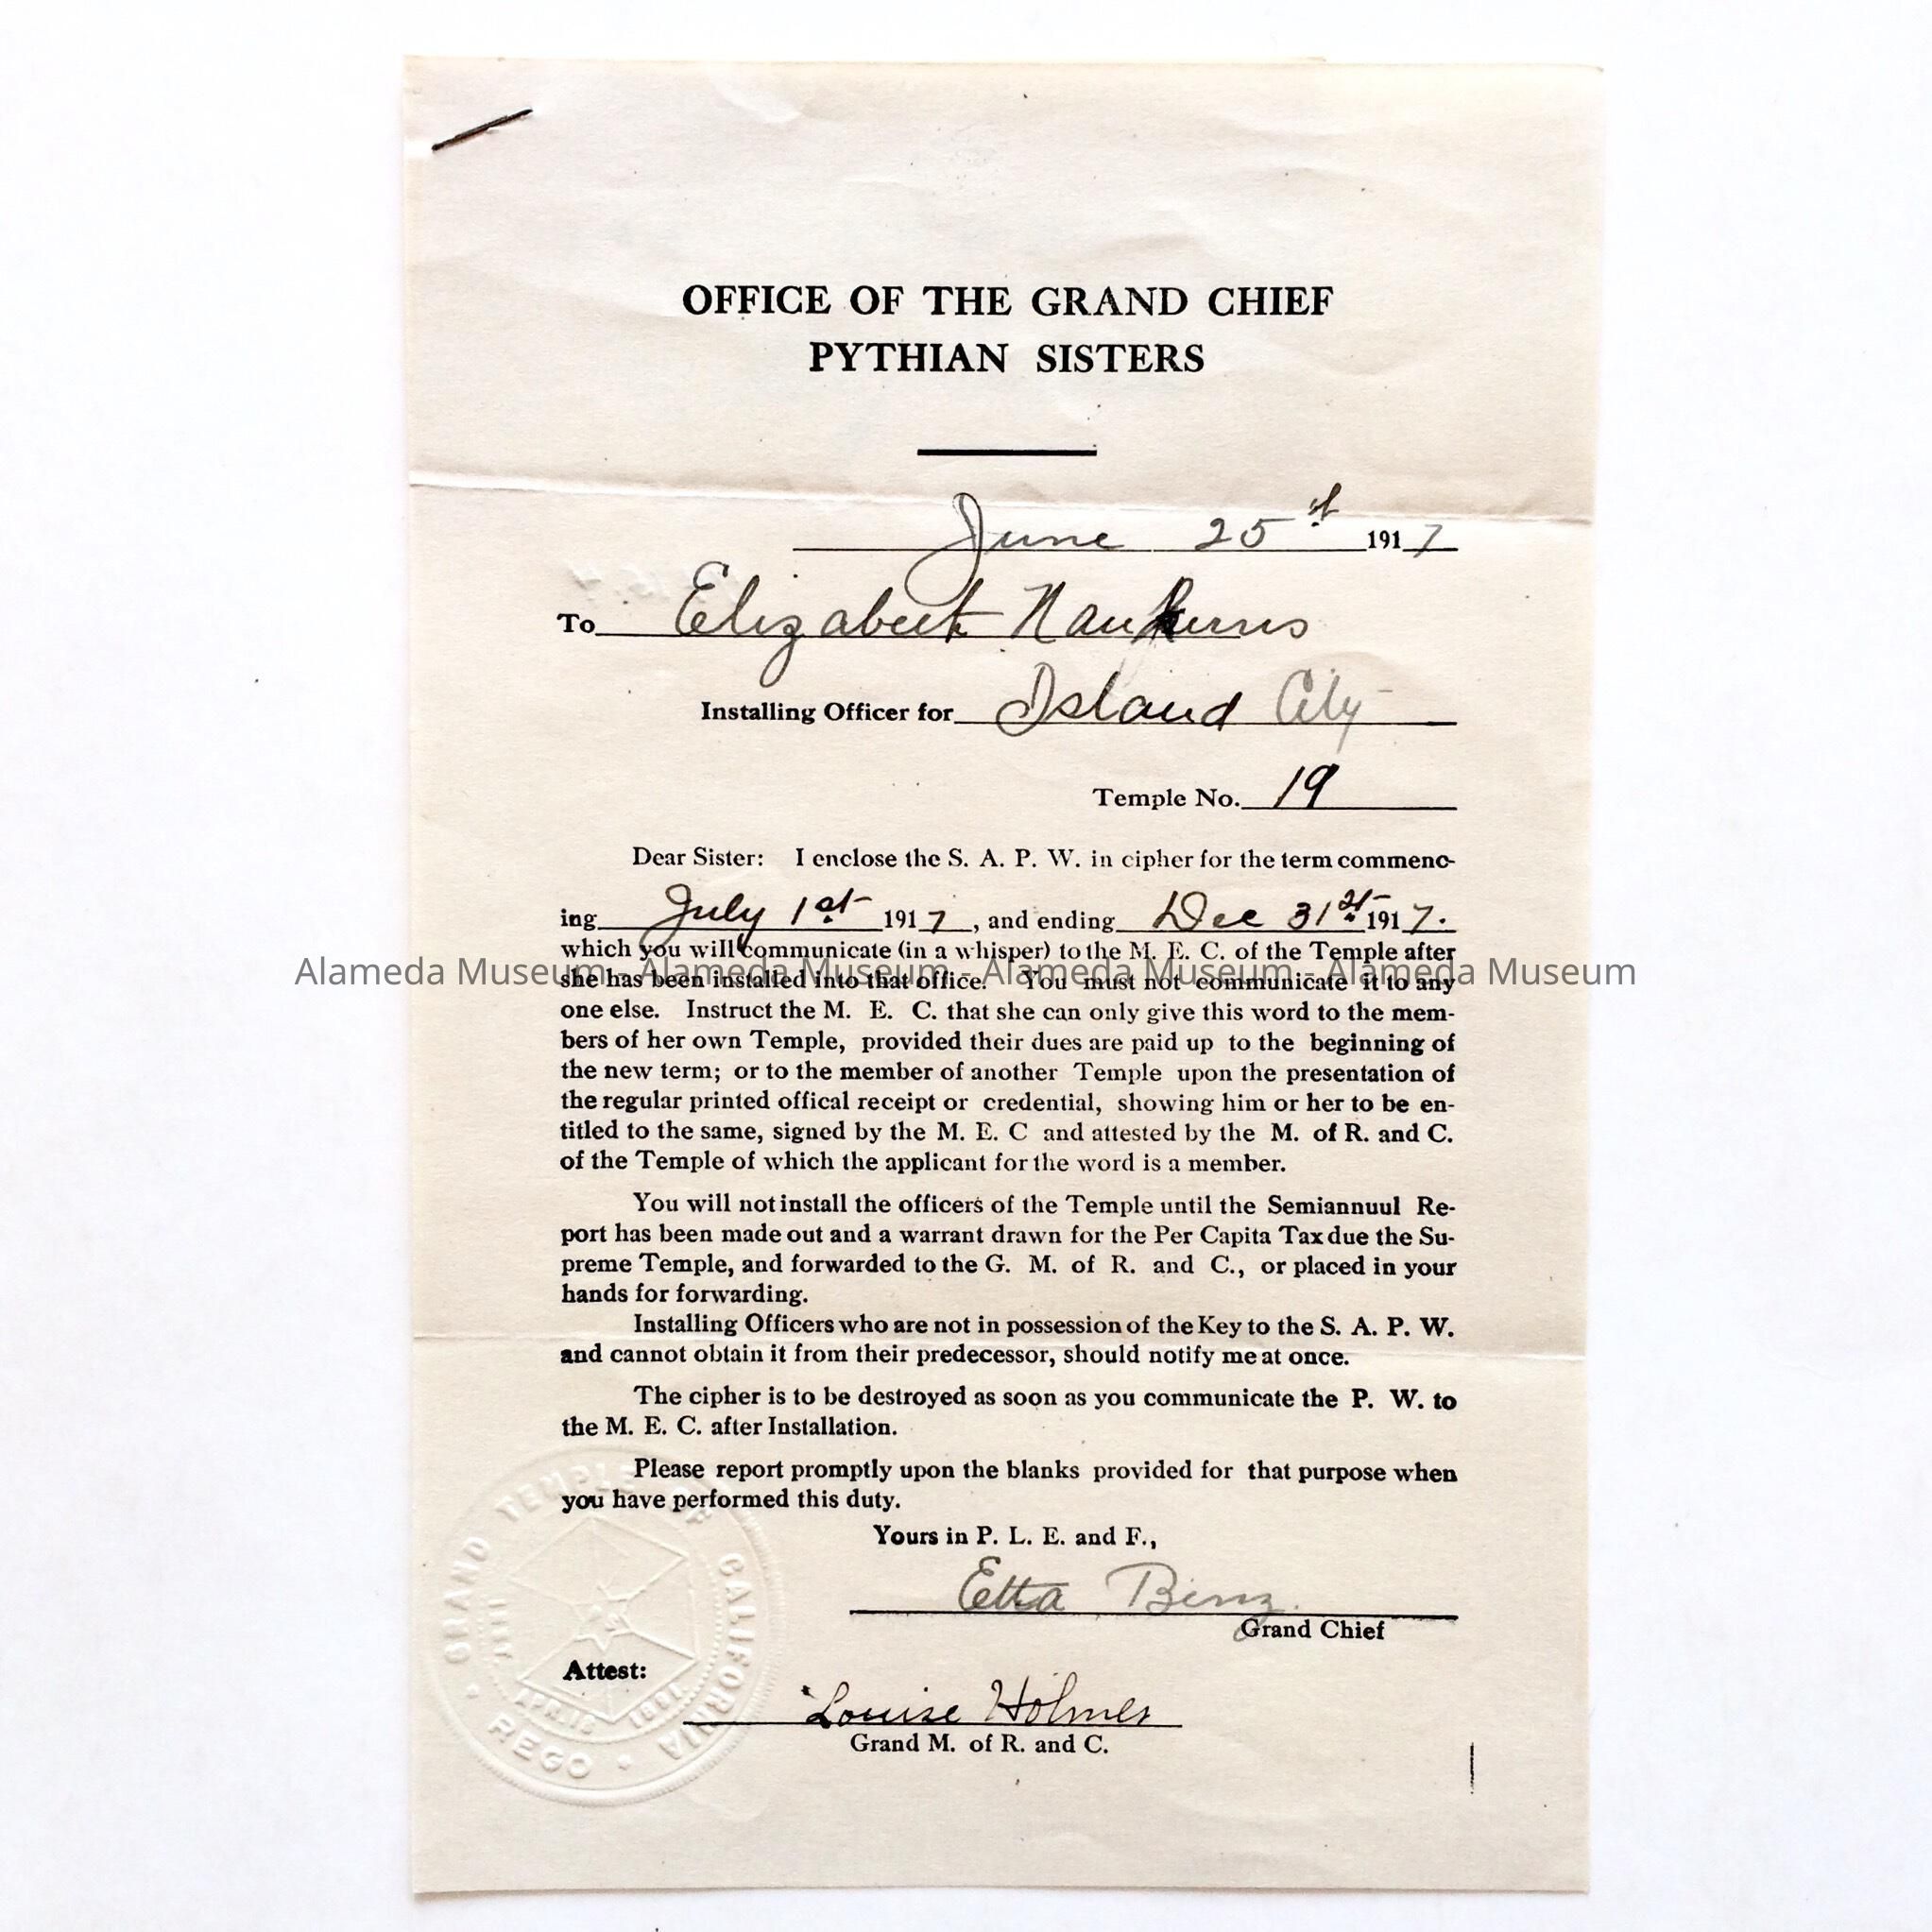 OFFICE OF THE GRAND CHIEF
PYTHIAN SISTERS
June 25 1917
To Elizabeth
Installing Officer for Island City
Temple No. 19
Dear Sister: I enclose the S. A. P. W. in cipher for the term commenc-
ing July 1st 1917, and ending Dec 31st 1917.
which you will communicate (in a whisper) to the M. E. C. of the Temple after
Alameda Museum - Alameda Museum - Alameda Museum - Alameda Museum
she has been installed into that office. You must not communicate it to any
one else. Instruct the M. E. C. that she can only give this word to the mem-
bers of her own Temple, provided their dues are paid up to the beginning of
the new term; or to the member of another Temple upon the presentation of
the regular printed offical receipt or credential, showing him or her to be en-
titled to the same, signed by the M. E. C and attested by the M. of R. and C.
of the Temple of which the applicant for the word is a member.
You will not install the officers of the Temple until the Semiannuul Re-
port has been made out and a warrant drawn for the Per Capita Tax due the Su-
preme Temple, and forwarded to the G. M. of R. and C., or placed in your
hands for forwarding.
Installing Officers who are not in possession of the Key to the S. A. P. W.
and cannot obtain it from their predecessor, should notify me at once.
The cipher is to be destroyed as soon as you communicate the P. W. to
the M. E. C. after Installation.
Please report promptly upon the blanks provided for that purpose when
you have performed this duty.
Yours in P. L. E. and F.,
Etta Benz.
Grand Chief
Attest:
Louise Holmes
Grand M. of R. and C.
GRAND TEMPLE OF CALIFORNIA
APR. 18 1891.
REGO